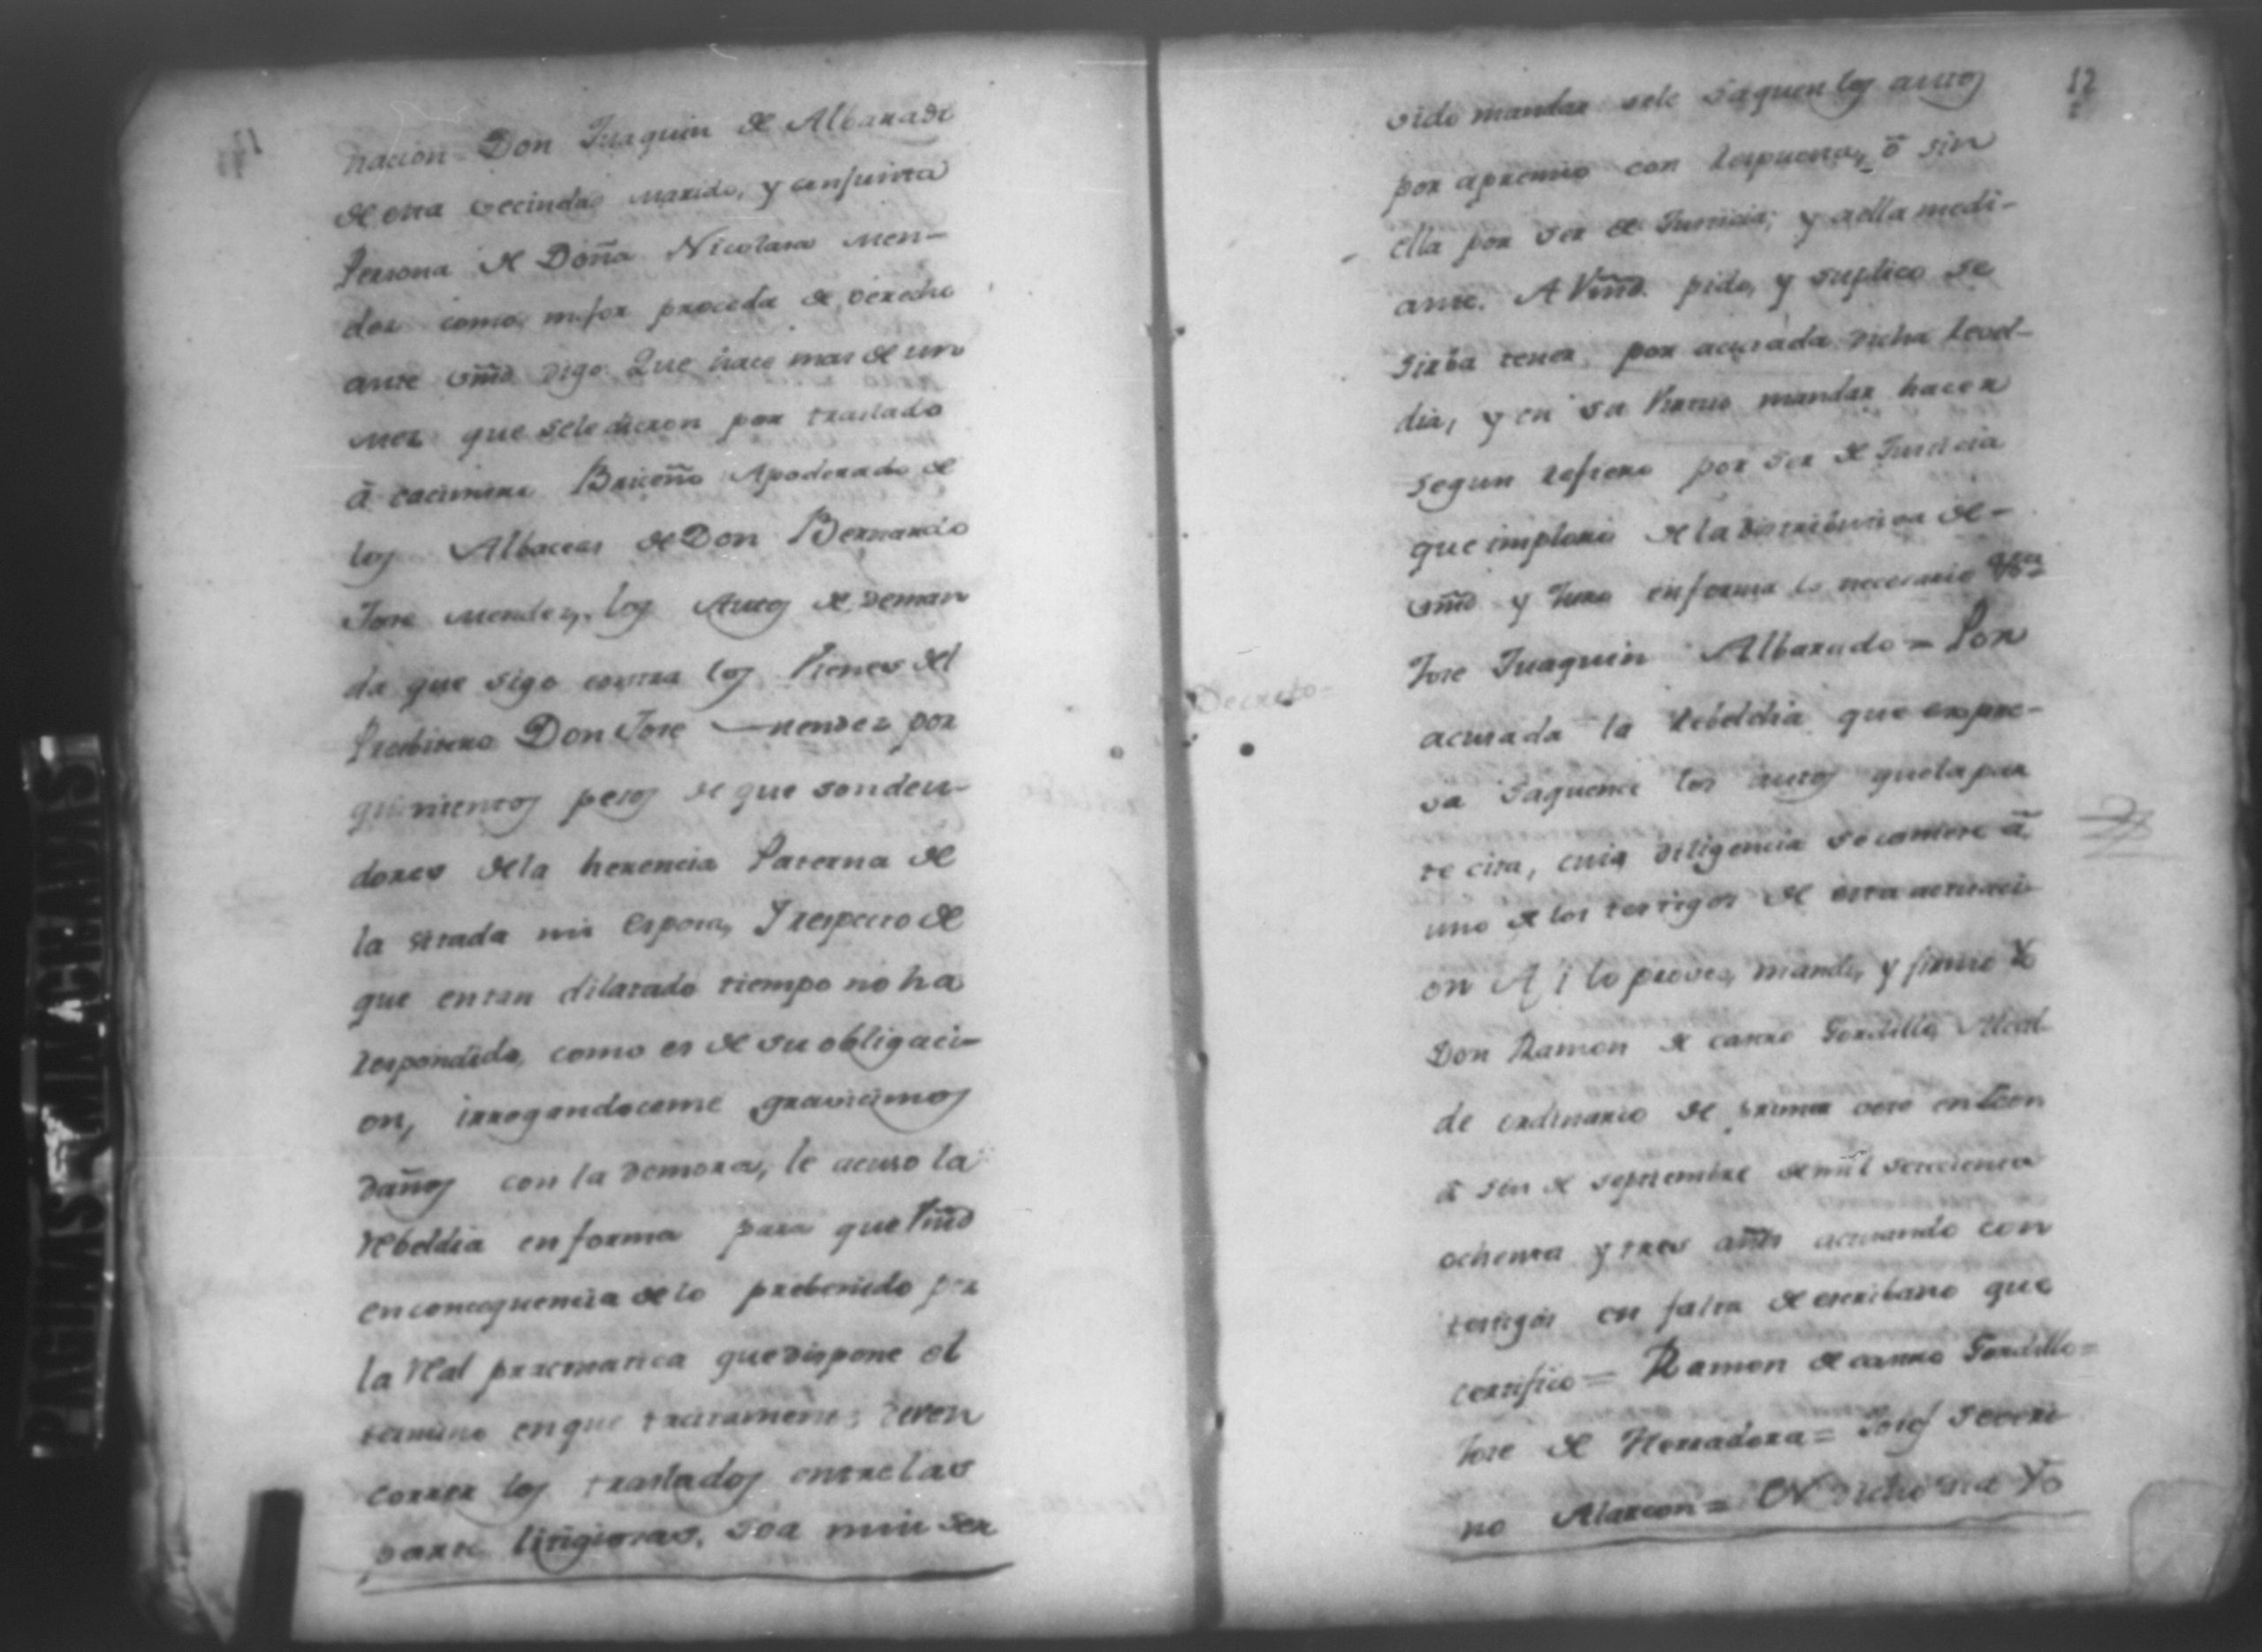 nacion = Don Juaquin de Albarado
de esta vecindad marido, y conjunta
Persona de Doña Nicolasa Men-
dos como mejor proceda de derecho
ante Vmd digo: Que hace mas de un
mez que sele dieron por traslado
â cacimiro Briceño Apoderado de
los Albaceas de Don Bernardo
Jose Mendez, los Autos de deman
da que sigo contra los Vienes del
Presbitero Don Jose Mendez por
quinientos pesos de que son deu-
dores dela herencia Paterna de
la sitada mi Esposa, Y respecto de
que en tan dilatado tiempo no ha
respondido, como es de su obligaci-
on, irrogandoceme gravicimos
daños con la demora, le acuso la
rebeldia en forma para que Vmd
en consequencia de lo prebenido por
la Real pracmatica que dispone el
termino en que precisamente deven
correr los traslados entre las
partes litigiosas, sea mui ser
12
vido mandar sele saquen los autos
por apremio con respuesta, ô sin
ella por ser de Justicia; y aella medi-
ante. A Vmd. pido, y suplico se
sirba tener por acusada dicha revel-
dia, y en su Virtud mandar hacer
segun refiero por ser de Justicia
que imploro de la distributiva de
Vmd y Juro en forma lo necesario &ca=
Jose Juaquin Albarado = Por
Decreto=
acusada la rebeldia que expre-
sa saquence los autos que la par
te cita, cuia diligencia se comete â
uno de los testigos de esta actuaci-
on Asi lo proveo, mando, y firmo Yo
Don Ramon de castro Gordillo Alcal-
de ordinario de primer voto en Leon
â seis de septiembre de mil setecientos
ochenta y tres años actuando con
testigos en falta de escribano que
certifico = Ramon de castro Gordillo =
Jose de Herradora = Josef Severi
no Alarcon = En dicho dia Yo